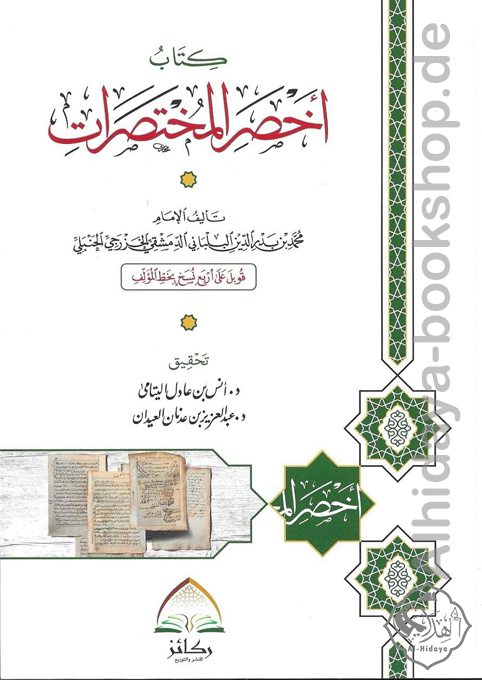 كِتَابُ
أَخْصَرِ المُخْتَصَرَاتِ
تَأليفُ الإِمَامِ
مُحَمَّد بْن بَدْرِ الدِّيْن البَلْبَانِي الدِّمَشْقِي الخَزْرَجِي الحَنْبَلِي
قُوبِلَ عَلَى أَرْبَعِ نُسَخٍ بِخَطِّ المُؤَلِّفِ
تَحْقِيق
د. أنس بن عادل اليتامى
د. عبدالعزيز بن عدنان العيدان
أَخْصَرِ المـ
ركائز
للنشر والتوزيع
Alhidaya-bookshop.de
الهداية
Al-Hidaya